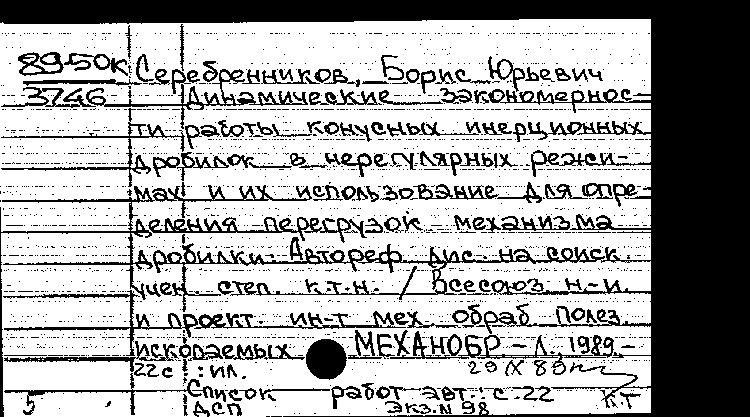 89-50к Серебренников, Борис Юрьевич
3746 Динамические закономернос-
ти работы конусных инерционных
дробилок в нерегулярных режи-
мах и их использование для опре-
деления перегрузок механизма
дробилки: Автореф. дис. на соиск.
учен. степ. к.т.н. / Всесоюз. н.-и.
и проект. ин-т мех. обраб. полез.
ископаемых МЕХАНОБР. - Л., 1989. -
22с : ил.
Список работ авт.: с.22
5 ДСП экз.N 98 К.Т